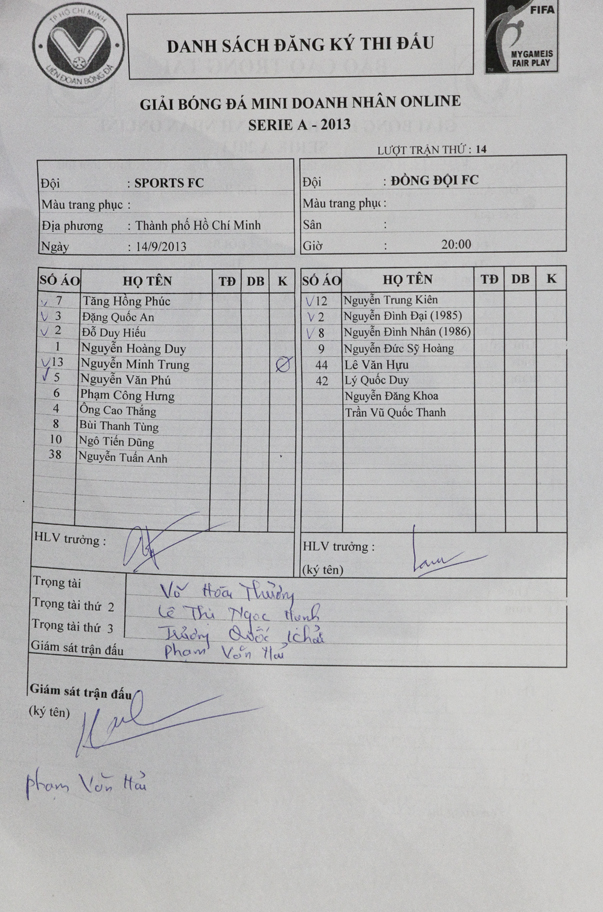 TP HỒ CHÍ MINH
LIÊN ĐOÀN BÓNG ĐÁ
DANH SÁCH ĐĂNG KÝ THI ĐẤU
FIFA
MY GAME IS
FAIR PLAY
GIẢI BÓNG ĐÁ MINI DOANH NHÂN ONLINE
SERIE A - 2013
LƯỢT TRẬN THỨ : 14
Đội : SPORTS FC
Màu trang phục :
Địa phương : Thành phố Hồ Chí Minh
Ngày : 14/9/2013
Đội : ĐỒNG ĐỘI FC
Màu trang phục:
Sân :
Giờ : 20:00
SỐ ÁO HỌ TÊN TĐ DB K
7 Tăng Hồng Phúc
3 Đặng Quốc An
2 Đỗ Duy Hiếu
1 Nguyễn Hoàng Duy
13 Nguyễn Minh Trung
5 Nguyễn Văn Phú
6 Phạm Công Hưng
4 Ông Cao Thắng
8 Bùi Thanh Tùng
10 Ngô Tiến Dũng
38 Nguyễn Tuấn Anh
SỐ ÁO HỌ TÊN TĐ DB K
12 Nguyễn Trung Kiên
2 Nguyễn Đình Đại (1985)
8 Nguyễn Đình Nhân (1986)
9 Nguyễn Đức Sỹ Hoàng
44 Lê Văn Hựu
42 Lý Quốc Duy
Nguyễn Đăng Khoa
Trần Vũ Quốc Thanh
HLV trưởng :
HLV trưởng :
(ký tên)
Trọng tài Võ Hoài Thương
Trọng tài thứ 2 Lê Thị Ngọc
Trọng tài thứ 3 Trương Quốc Khải
Giám sát trận đấu Phạm Văn Hải
Giám sát trận đấu
(ký tên)
Phạm Văn Hải